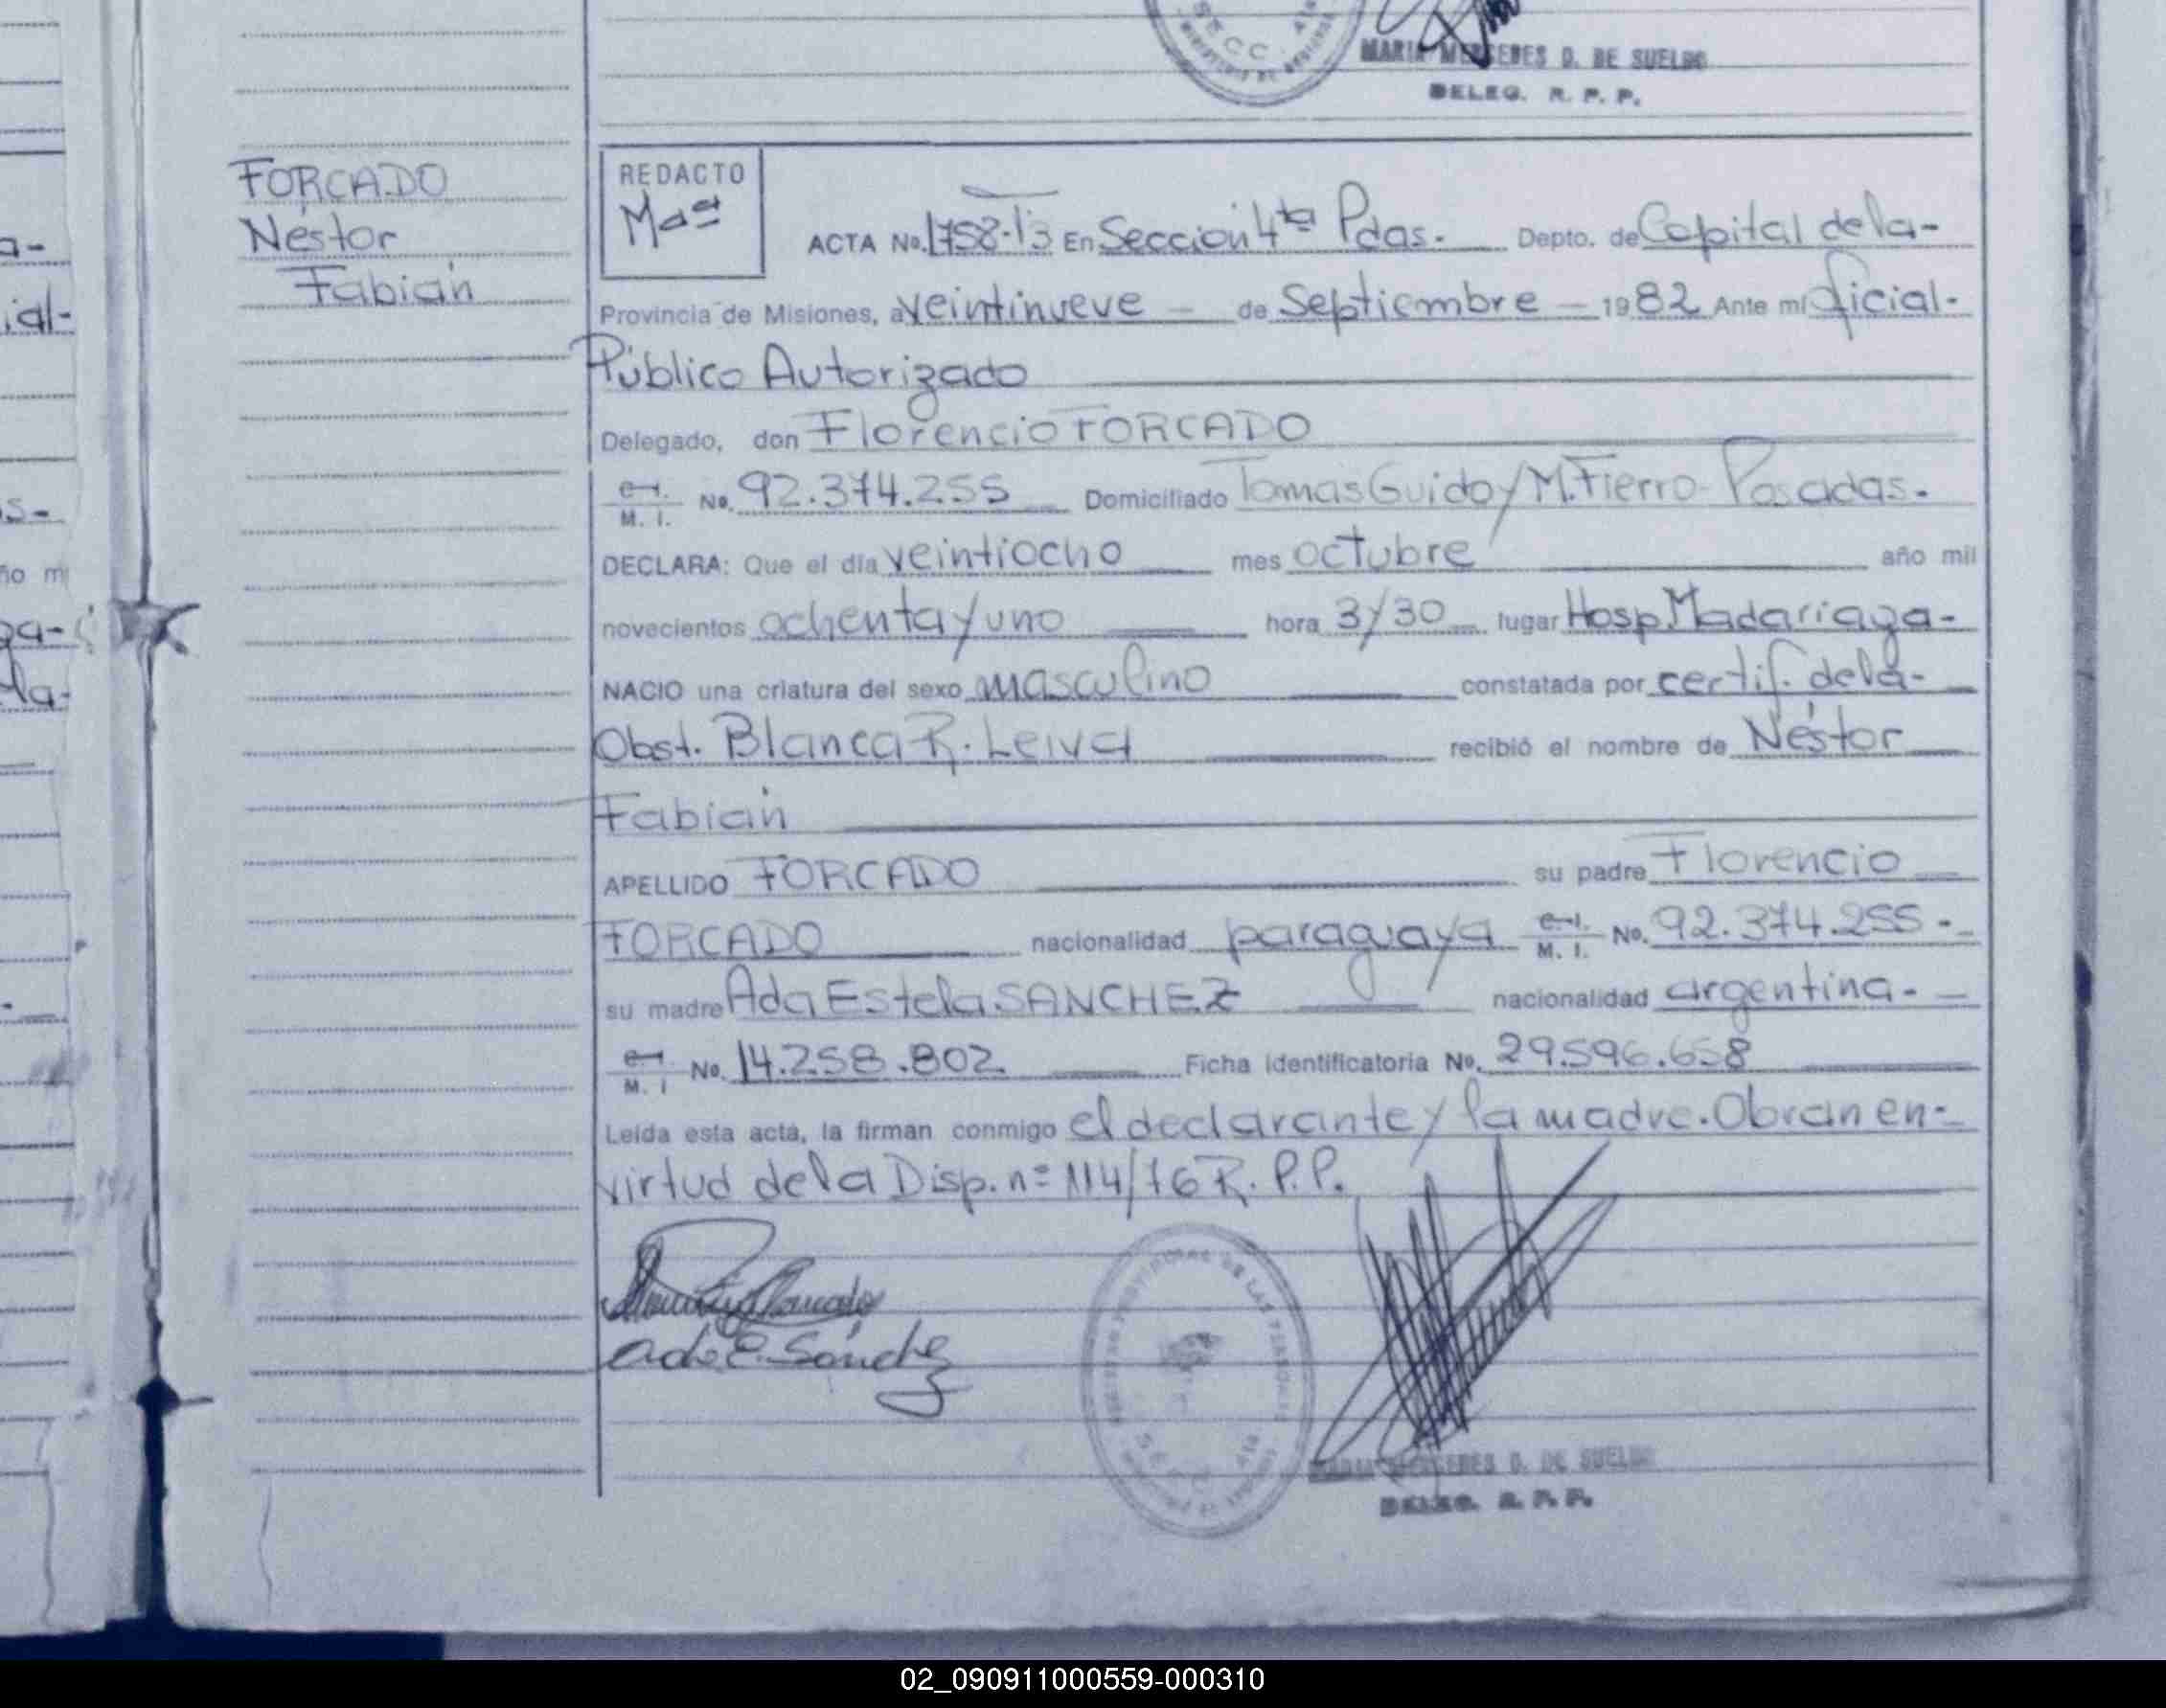 SECC. 4ta
MARIA MERCEDES D. DE SUELDO
DELEG. R. P. P.
FORCADO
Néstor
Fabián
REDACTO
ACTA No. 1758-T3 En Sección 4ta Pdas. Depto. de Capital de la-
Provincia de Misiones, a veintinueve - de Septiembre - 1982 Ante mí Oficial-
Público Autorizado
Delegado, don Florencio FORCADO
C.I. M. I. No. 92.374.255 Domiciliado Tomas Guido y M. Fierro - Posadas.
DECLARA: Que el día veintiocho mes octubre año mil
novecientos ochenta y uno hora 3/30 lugar Hosp. Madariaga-
NACIO una criatura del sexo masculino constatada por certif. de la-
Obst. Blanca R. Leiva recibió el nombre de Néstor
Fabián
APELLIDO FORCADO su padre Florencio
FORCADO nacionalidad paraguaya C.I. M. I. No. 92.374.255-
su madre Ada Estela SANCHEZ nacionalidad argentina-
M. I No. 14.258.802 Ficha Identificatoria No. 29.596.658
Leída esta acta, la firman conmigo el declarante y la madre. Obran en-
virtud de la Disp. nº 114/76 R. P. P.
Ada E. Sánchez
MARIA MERCEDES D. DE SUELDO
DELEG. R. P. P.
02_090911000559-000310